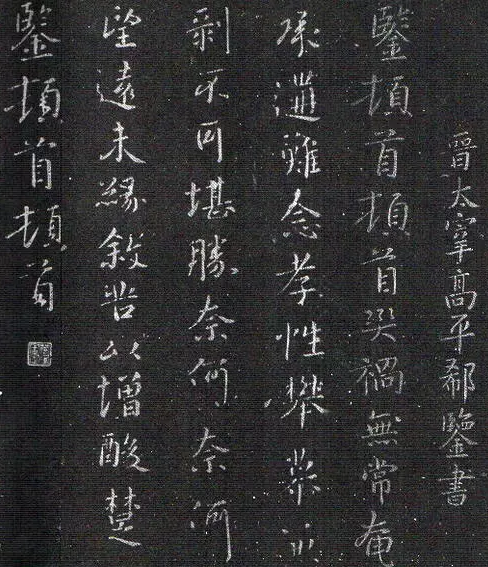 晉太宰高平郗鑒書
鑒頓首頓首災禍無常奄
承遘難念孝性攀慕兆
剝不可堪勝奈何奈何
望遠未緣敘苦以增酸楚
鑒頓首頓首